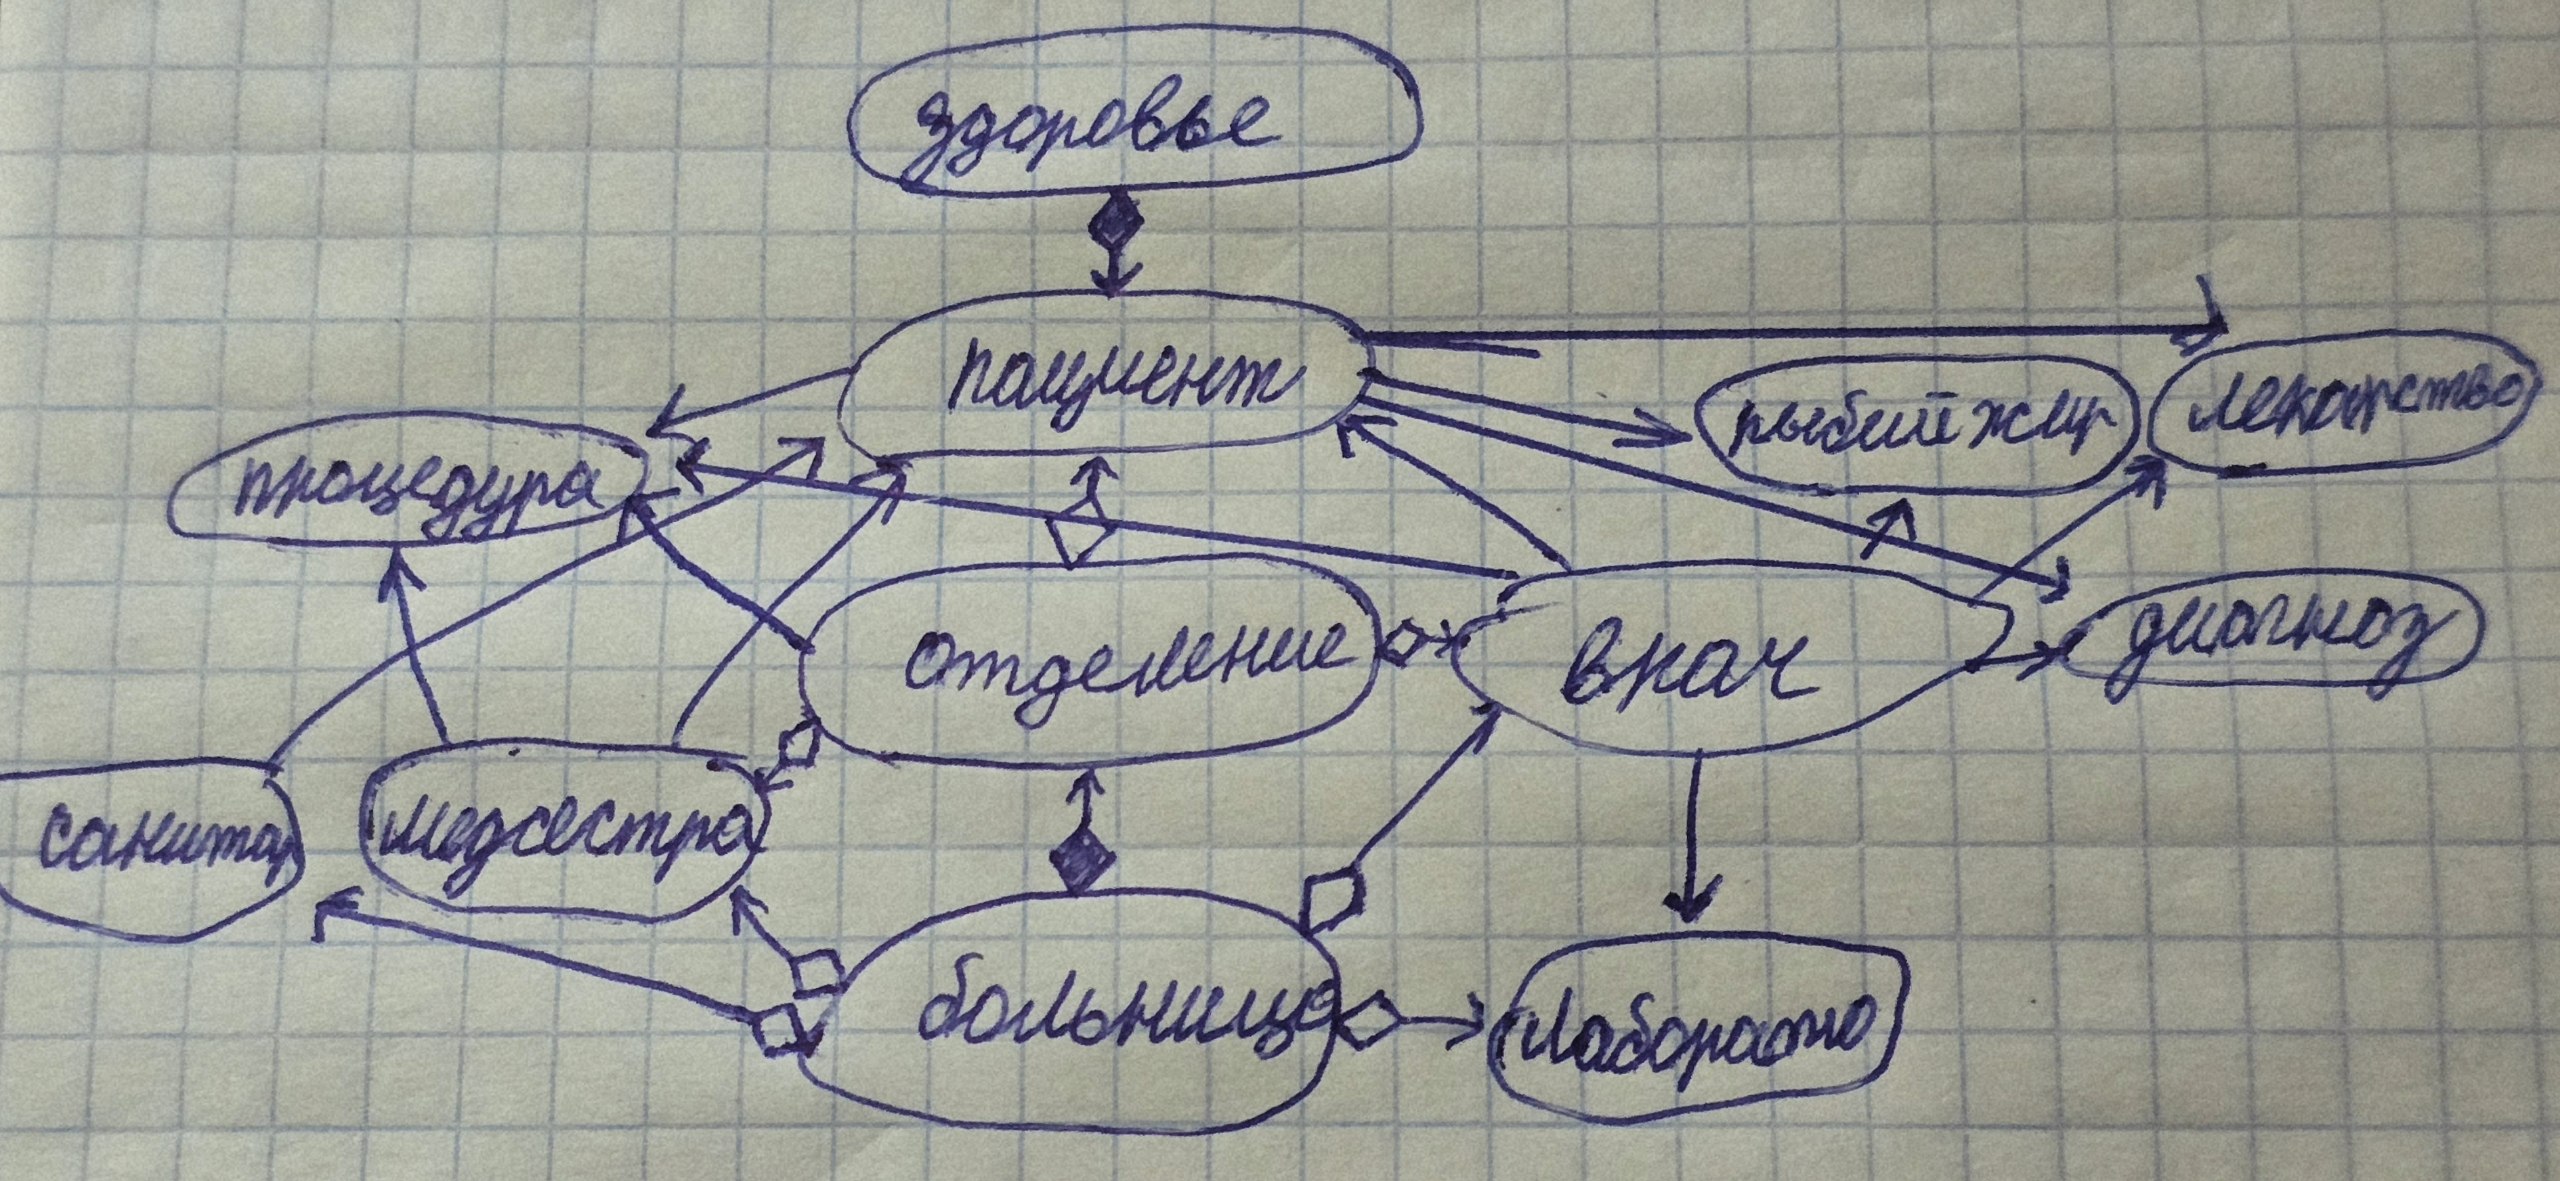 здоровье
пациент
рыбий жир
лекарство
процедура
отделение
врач
диагноз
санитар
медсестра
больница
лаборато